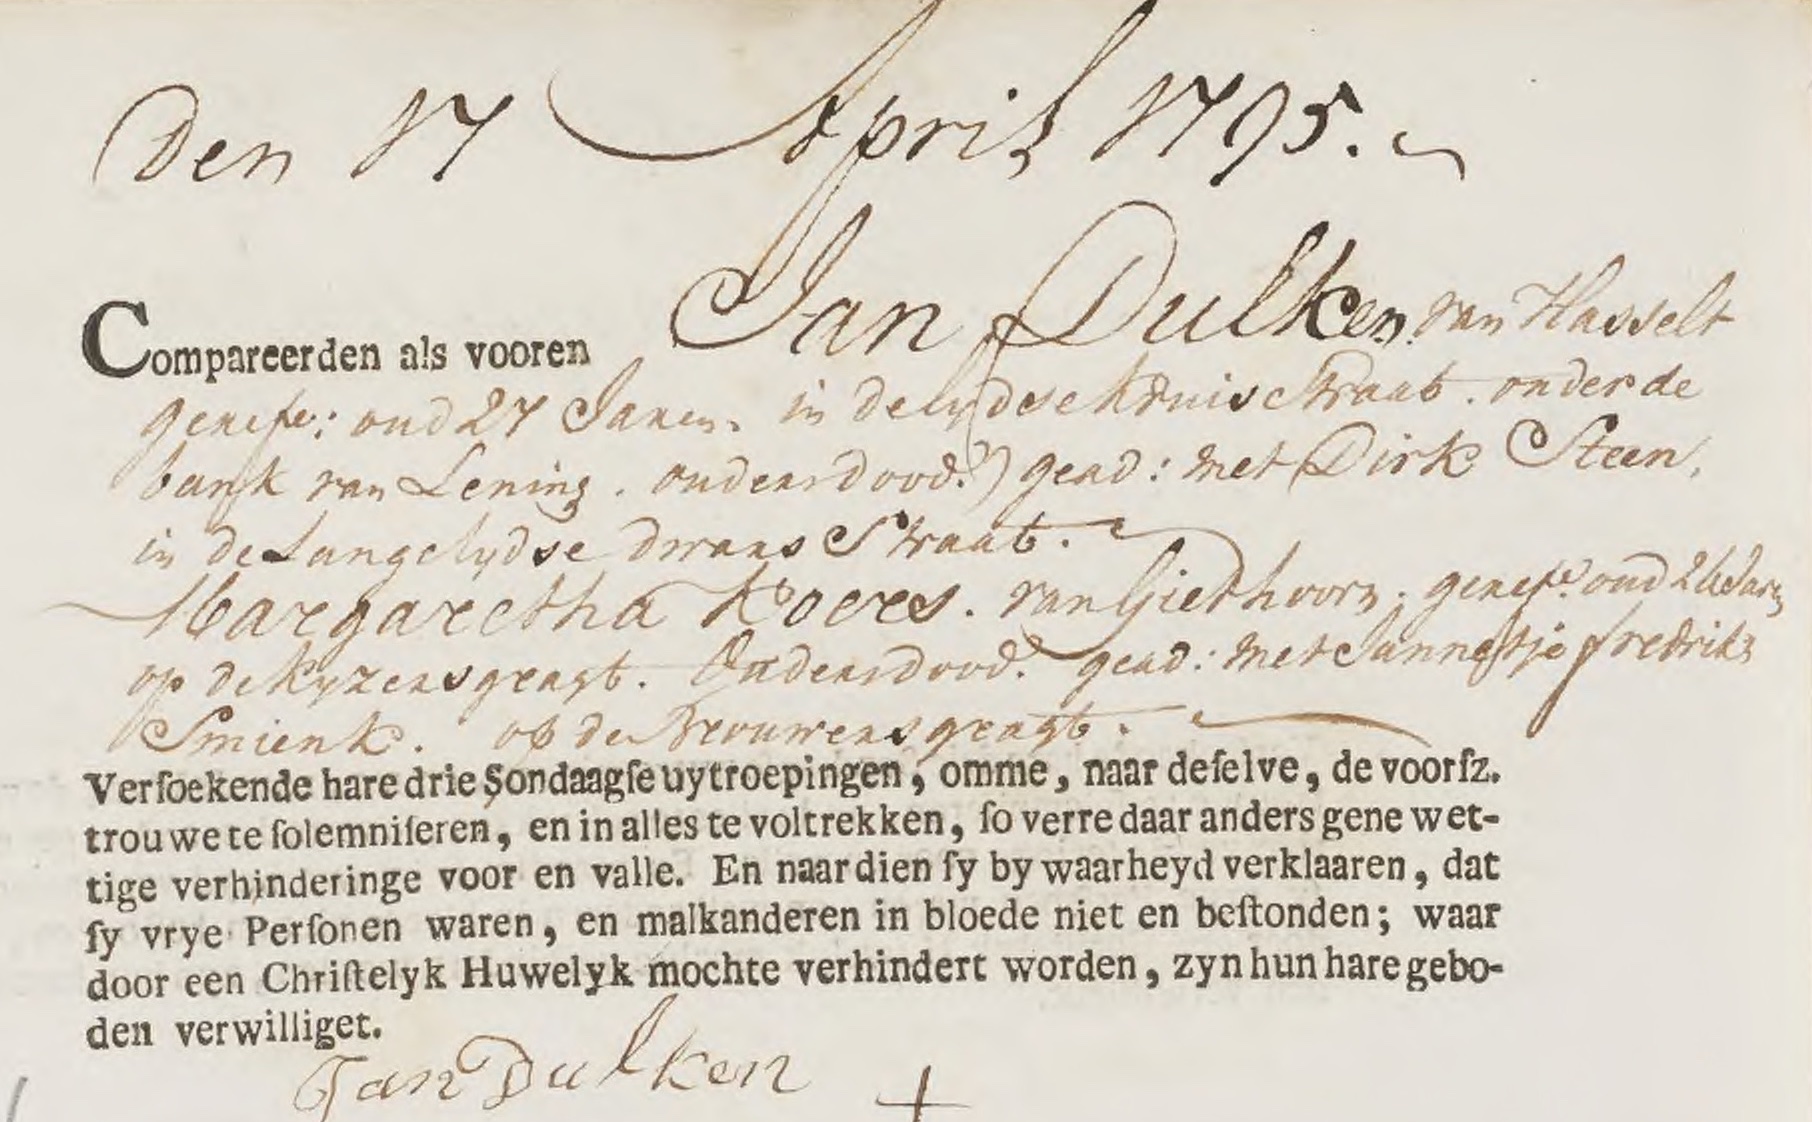 Den 17 April 1795.
Compareerden als vooren Jan Dulken van Hasselt
geref: oud 27 Jaren. in de lydsche kruis Straat. onder de
bank van Lening. ouders dood.) gead: met Dirk Steen,
in de Lange lydse dwars Straat.
Margaretha Koers. van Giethoorn, geref: oud 26 Jaren
op de Kyzersgragt. Ouders dood. gead: met Jannetje fredriks
Smienk. op de Brouwersgragt.
Verſoekende hare drie Sondaagſe uytroepingen, omme, naar deſelve, de voorſz.
trouwe te ſolemniſeren, en in alles te voltrekken, ſo verre daar anders gene wet-
tige verhinderinge voor en valle. En naardien ſy by waarheyd verklaaren, dat
ſy vrye Perſonen waren, en malkanderen in bloede niet en beſtonden; waar
door een Chriſtelyk Huwelyk mochte verhindert worden, zyn hun hare gebo-
den verwilliget.
Jan Dulken +